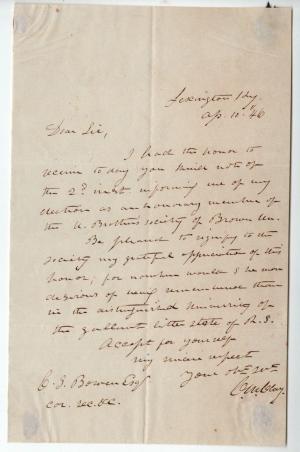 Lexington Ky.
Ap. 10. '46
Dear Sir,
I had the honor to
receive to day your kind note of
the 2d inst informing me of my
election as an honorary member of
the U. Brothers society of Brown Un.
Be pleased to signify to the
society my grateful appreciation of this
honor; for nowhere would I be more
desirous of being remembered than
in the distinguished University of
the gallant little state of R.I.
Accept for yourself
my sincere respect
Your obt. svt.
C. S. Bowen Esq
C M Clay.
cor. sec. &c.